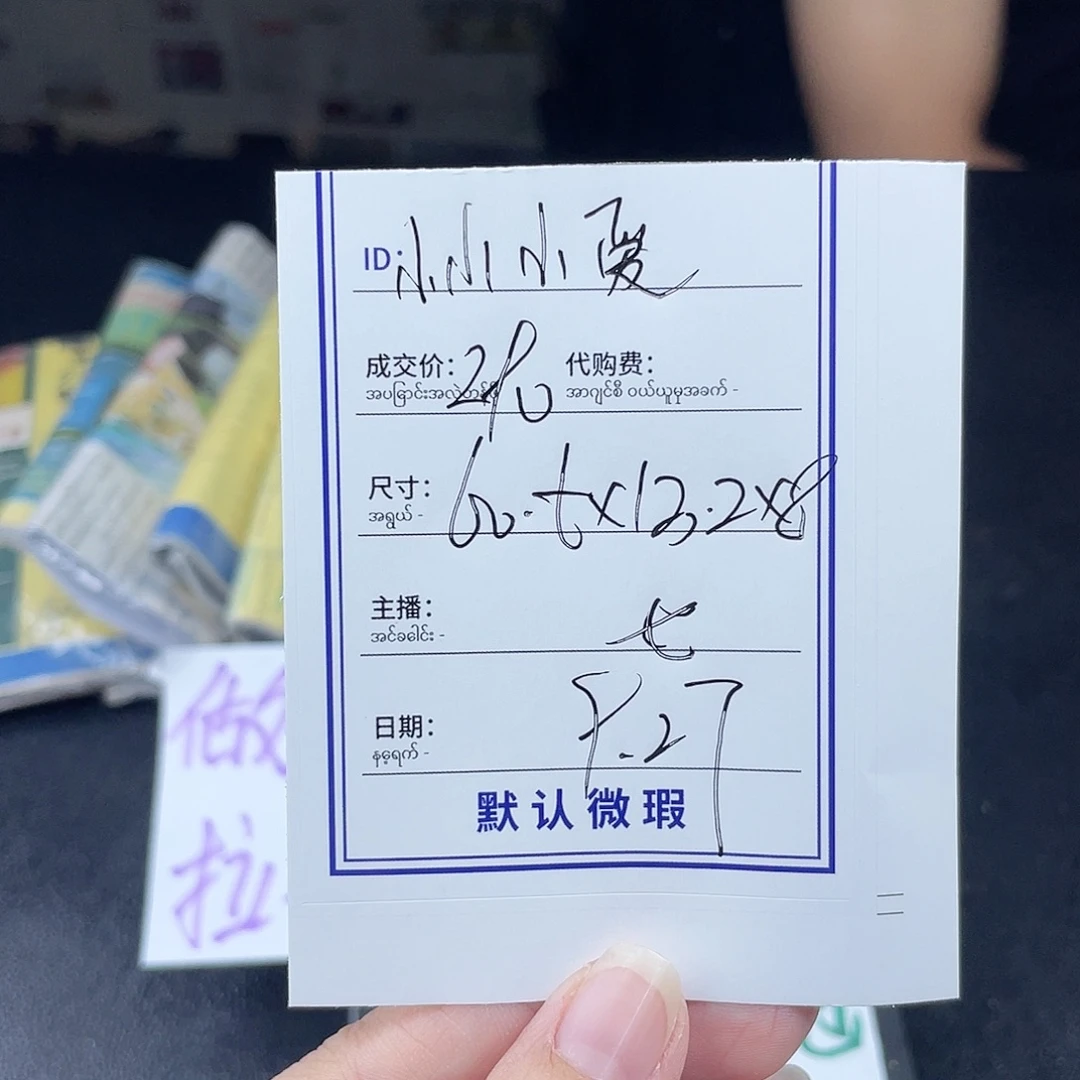 ID: 小小小夏
成交价: 280 代购费:
အပြောင်းအလဲတန်ဖိုး အာဂျင်စီ ဝယ်ယူမှုအခက် -
尺寸: 60.6x13.2x8
အရွယ် -
主播: 七
အင်ခေါင်း -
日期: 8.27
နေ့ရက် -
默认微瑕
做
拉